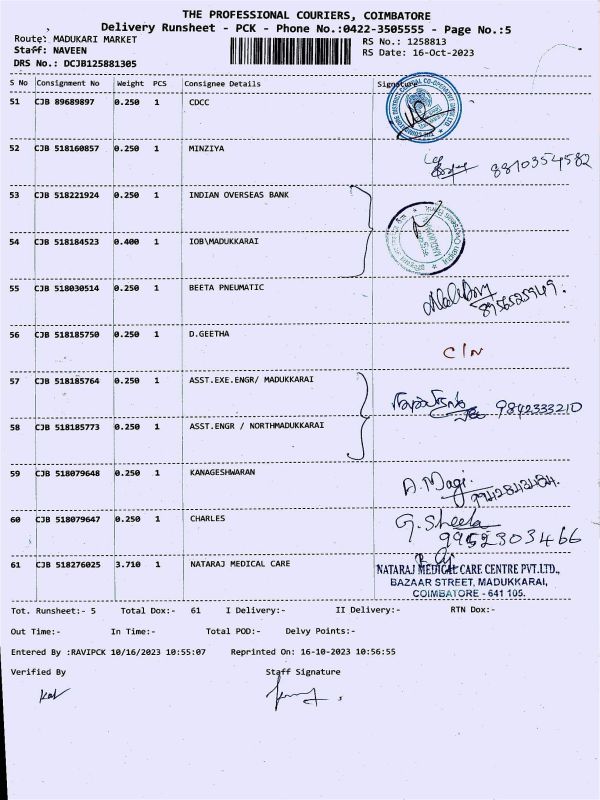 THE PROFESSIONAL COURIERS, COIMBATORE
Delivery Runsheet - PCK - Phone No.:0422-3505555 - Page No.:5
Route: MADUKARI MARKET RS No.: 1258813
Staff: NAVEEN RS Date: 16-Oct-2023
DRS No.: DCJB125881305
S No Consignment No Weight PCS Consignee Details Signature
51 CJB 89689897 0.250 1 CDCC
52 CJB 518160857 0.250 1 MINZIYA 8810354582
53 CJB 518221924 0.250 1 INDIAN OVERSEAS BANK
54 CJB 518184523 0.400 1 IOB\MADUKKARAI
55 CJB 518030514 0.250 1 BEETA PNEUMATIC 8956525949.
56 CJB 518185750 0.250 1 D.GEETHA C/N
57 CJB 518185764 0.250 1 ASST.EXE.ENGR/ MADUKKARAI 9842333210
58 CJB 518185773 0.250 1 ASST.ENGR / NORTHMADUKKARAI
59 CJB 518079648 0.250 1 KANAGESHWARAN A. Magi.
60 CJB 518079647 0.250 1 CHARLES G. Sheela
9952303466
61 CJB 518276025 3.710 1 NATARAJ MEDICAL CARE NATARAJ MEDICAL CARE CENTRE PVT.LTD.,
BAZAAR STREET, MADUKKARAI,
COIMBATORE - 641 105.
Tot. Runsheet:- 5 Total Dox:- 61 I Delivery:- II Delivery:- RTN Dox:-
Out Time:- In Time:- Total POD:- Delvy Points:-
Entered By :RAVIPCK 10/16/2023 10:55:07 Reprinted On: 16-10-2023 10:56:55
Verified By Staff Signature